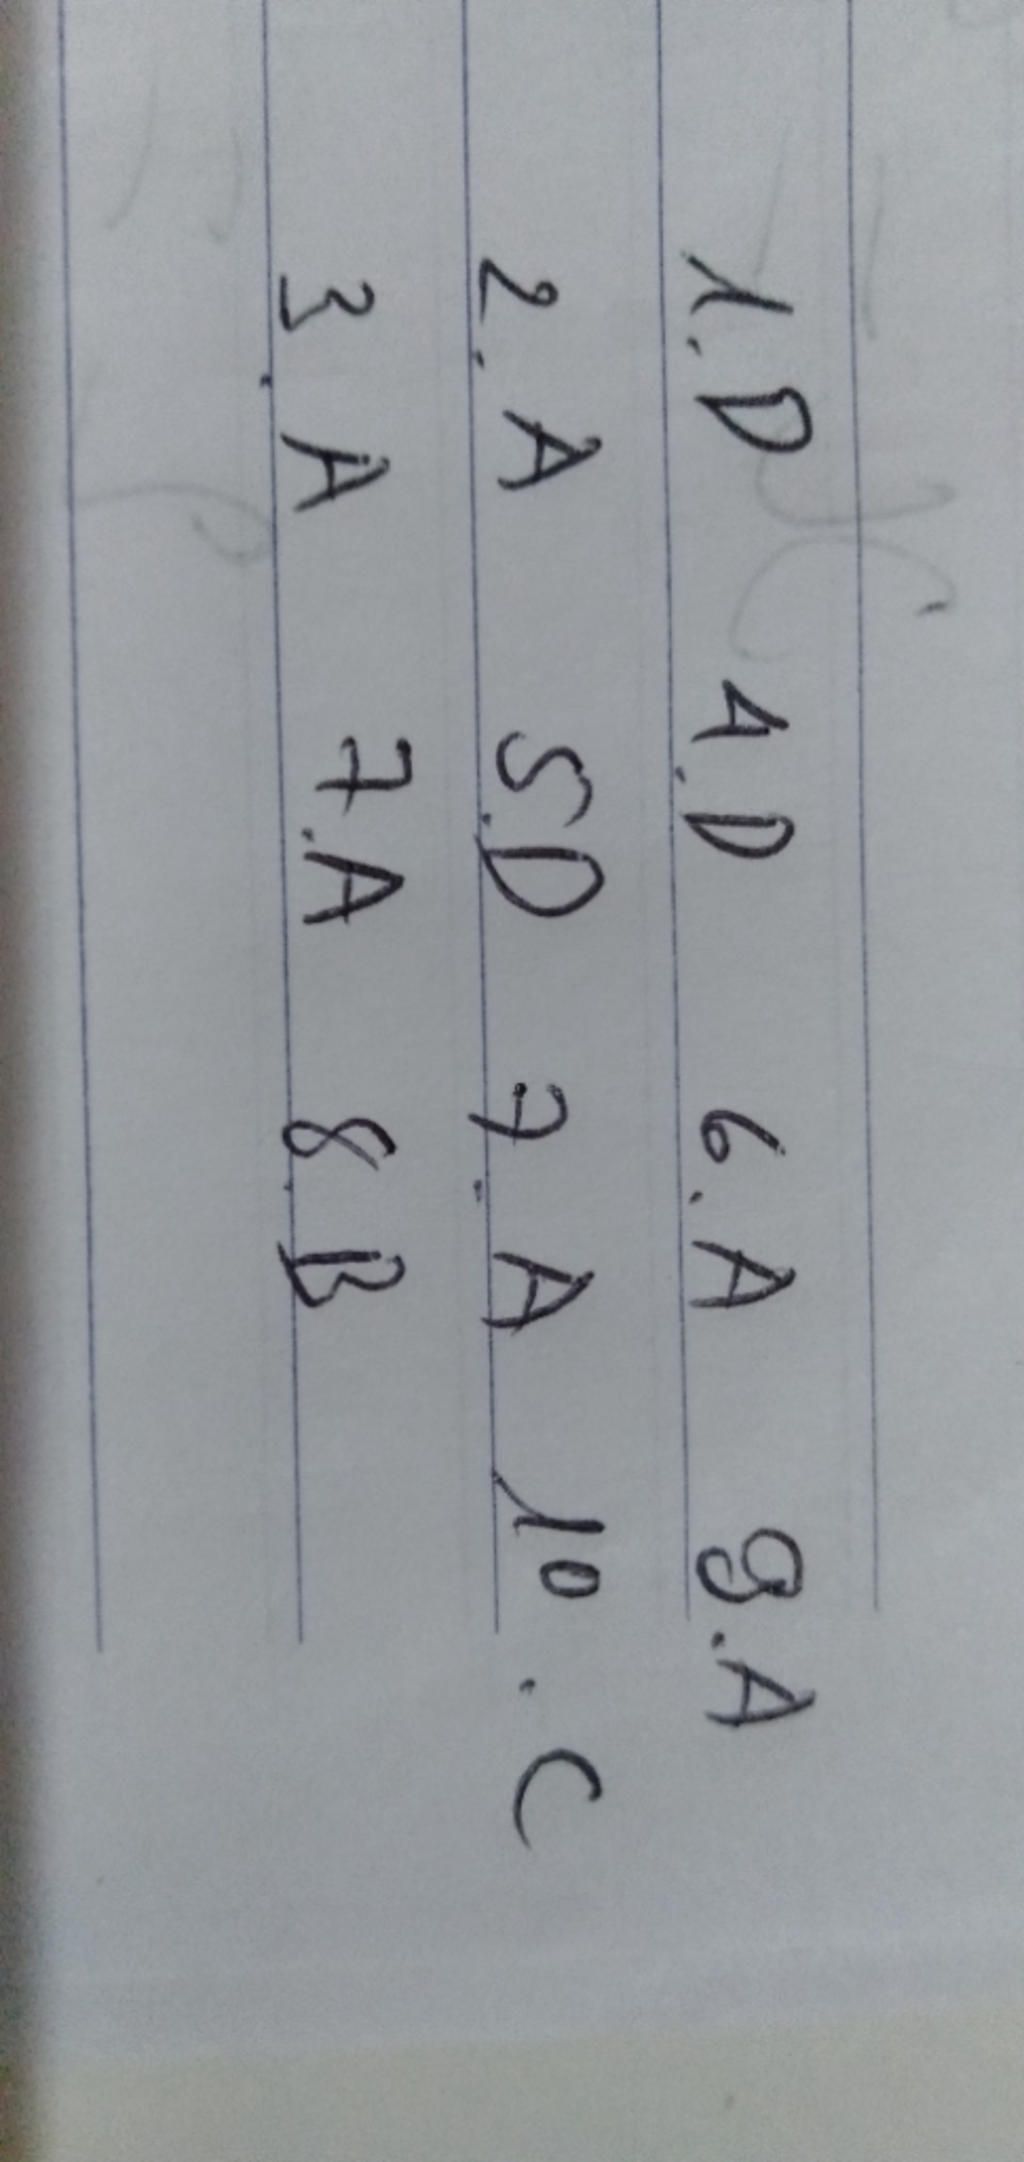 1. D 4. D 6. A 9. A
2. A 5. D 7. A 10. C
3. A 7. A 8. B